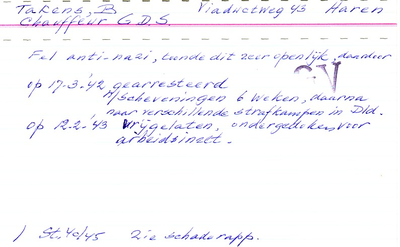 Takens, B. Viaductweg 43 Haren
Chauffeur G.D.S.
Fel anti-nazi, uitte dit zeer openlijk, daardoor
op 17-3-'42 gearresteerd
n/Scheveningen 6 weken, daarna
naar verschillende strafkampen in Dld.
op 12-2-'43 vrijgelaten, ondergedoken voor
arbeidsinzet.
CV
) St. 40/45 Zie schaderapp.